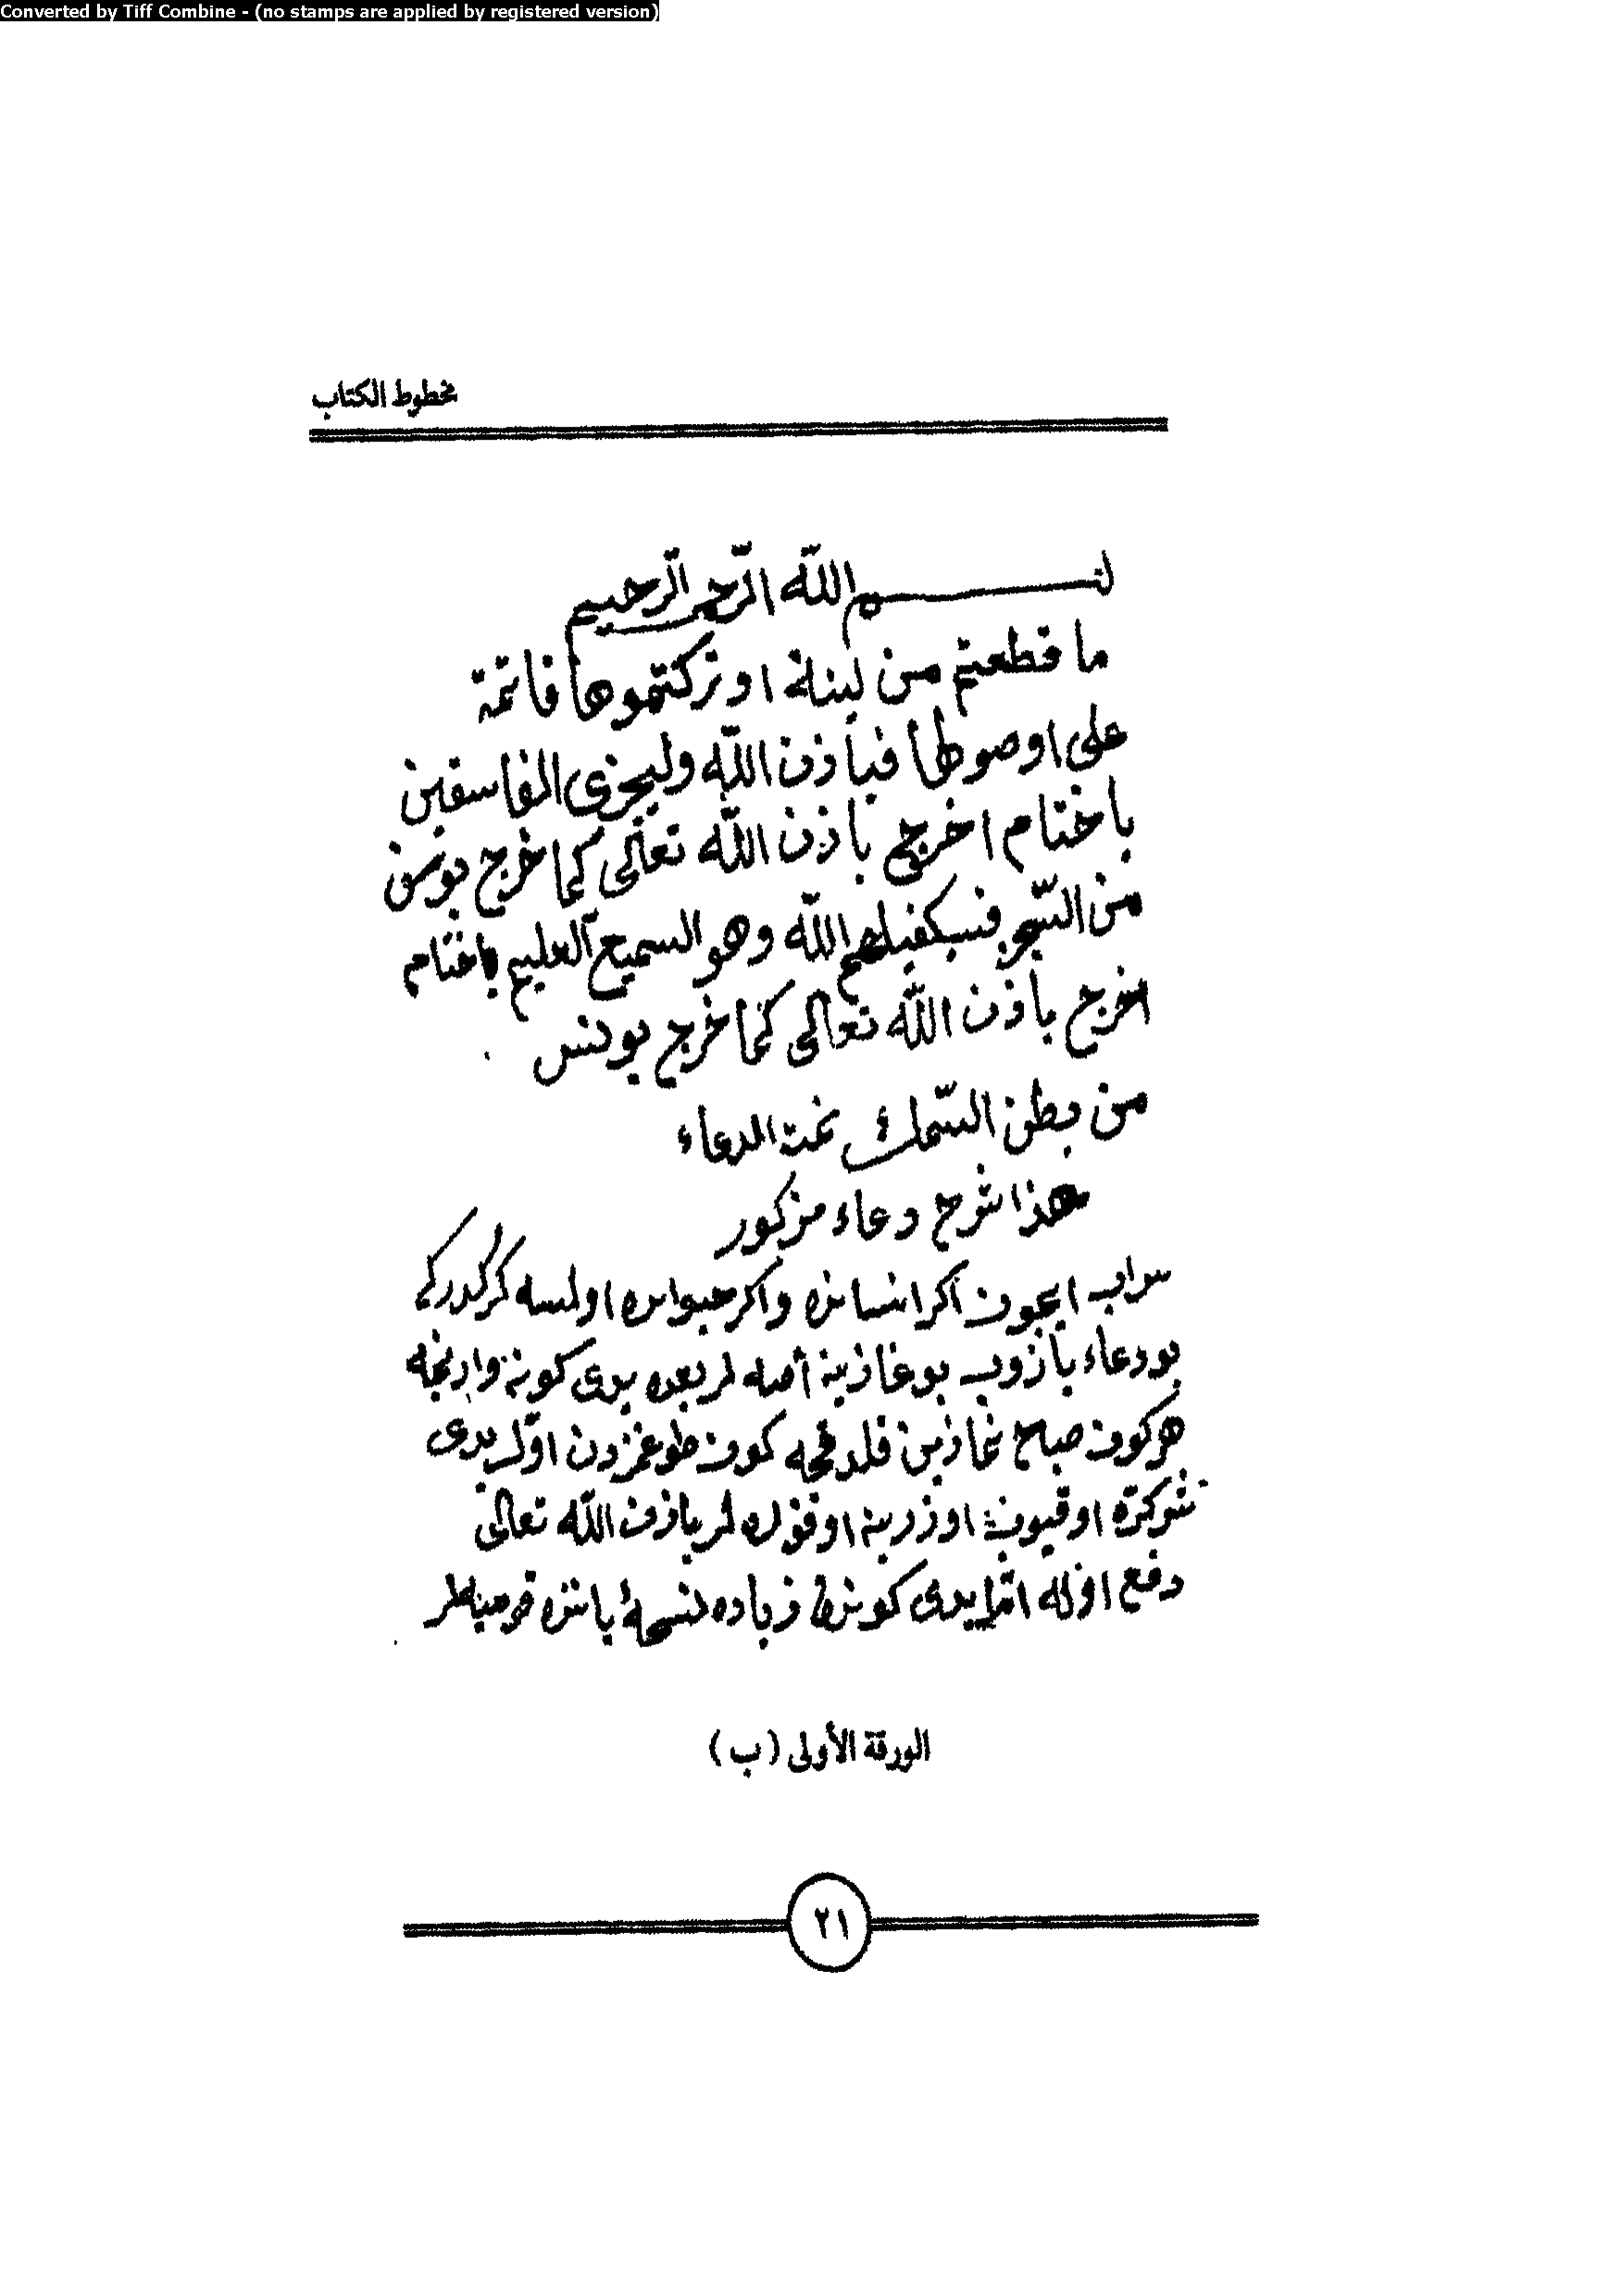 Converted by Tiff Combine - (no stamps are applied by registered version)
مخطوط الكتاب
بسم الله الرحمن الرحيم
ما قطعتم من لينة او تركتموها قائمة
على اوصولها فباذن الله وليجزى الفاسقين
باختام اخرج باذن الله تعالى كما خرج يوسف
من السجن فسيكفيكهم الله وهو السميع العليم باختام
اخرج باذن الله تعالى كما خرج يونس
من بطن السمك تمت الدعاء
هذا شرح دعاء مزكور
ايجون اكر انسانده واكر حيوانده اولسه كركدركه
بو دعاء يازوب بوغازينه اصه لر بعده يدى كونه وارنجه
هر كون صباح نمازين قلدقجه كون طوغمزدن اول يدى
كره اوقيوب اوزرينه اوفوره لر باذن الله تعالى
دفع اوله اما يدى كوندن زياده نسخه يانده قوميالر
الورقة الأولى (ب)
٢١